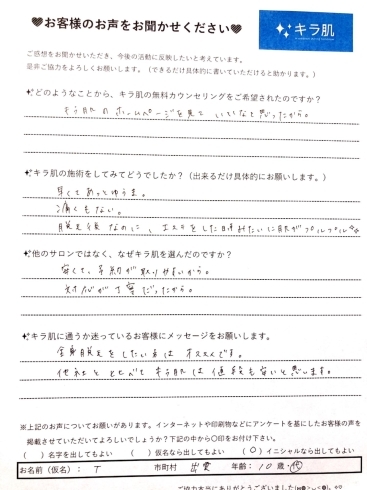 ♥お客様のお声をお聞かせください♥
キラ肌
ご感想をお聞かせいただき、今後の活動に反映したいと考えています。
是非ご協力をよろしくお願いします。（できるだけ具体的に書いていただけると助かります。）
どのようなことから、キラ肌の無料カウンセリングをご希望されたのですか？
キラ肌のホームページを見て いいなと思ったから。
キラ肌の施術をしてみてどうでしたか？（出来るだけ具体的にお願いします。）
早くてあっとゆうま。
痛くもない。
脱毛後なのに、エステをした時みたいに肌がプルプル
他のサロンではなく、なぜキラ肌を選んだのですか？
安くて、予約が取りやすいから。
対応が丁寧だったから。
キラ肌に通うか迷っているお客様にメッセージをお願いします。
全身脱毛をしたい方は オススメです。
他社とくらべて キラ肌は値段も安いと思います。
※上記のお声についてお願いがあります。インターネットや印刷物などにアンケートを基にしたお客様の声を
掲載させていただいてよろしいでしょうか？下記の中から〇印をお付け下さい。
（　）名字を出してもよい （　）仮名なら出してもよい （〇）イニシャルなら出してもよい
お名前（仮名）： T 市町村 出雲 年齢：10歳・代
ご協力本当にありがとうございました